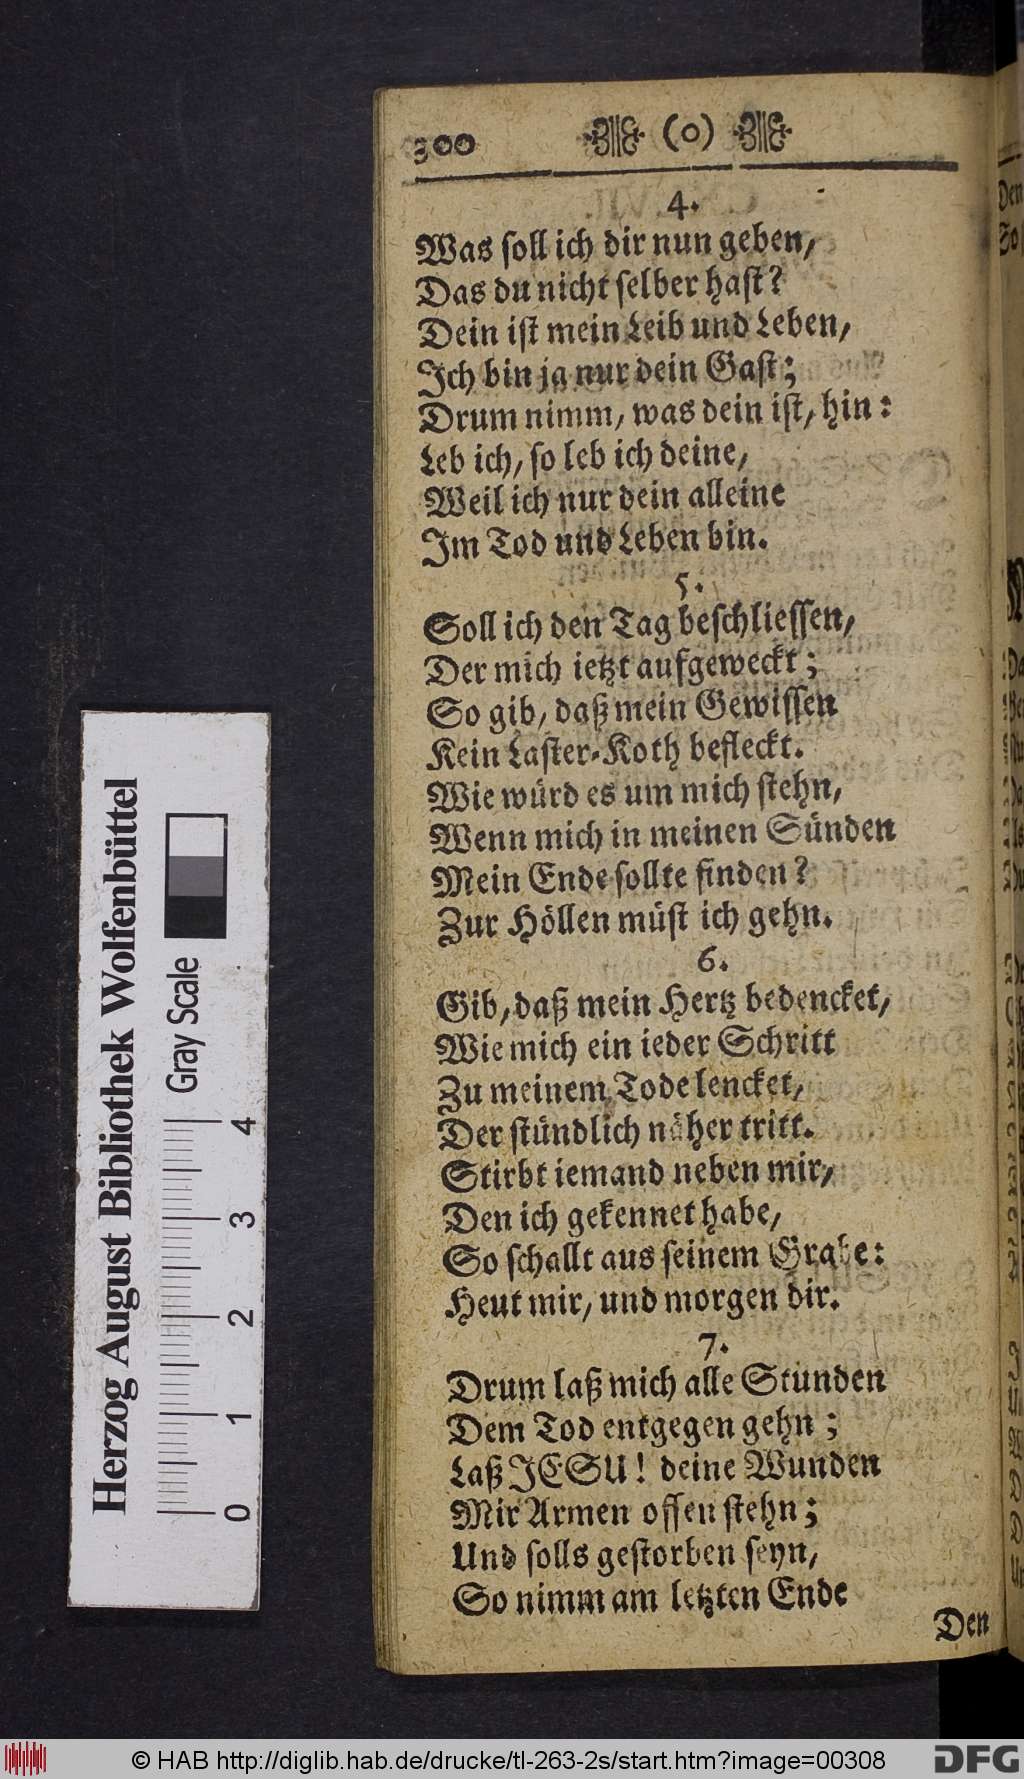 300 (o)
4.
Was soll ich dir nun geben,
Das du nicht selber hast?
Dein ist mein Leib und Leben,
Ich bin ja nur dein Gast;
Drum nimm, was dein ist, hin:
Leb ich, so leb ich deine,
Weil ich nur dein alleine
Im Tod und Leben bin.
5.
Soll ich den Tag beschliessen,
Der mich ietzt aufgeweckt;
So gib, daß mein Gewissen
Kein Laster-Koth befleckt.
Wie würd es um mich stehn,
Wenn mich in meinen Sünden
Mein Ende sollte finden?
Zur Höllen müst ich gehn.
6.
Gib, daß mein Hertz bedencket,
Wie mich ein ieder Schritt
Zu meinem Tode lencket,
Der stündlich näher tritt.
Stirbt iemand neben mir,
Den ich gekennet habe,
So schallt aus seinem Grabe:
Heut mir, und morgen dir.
7.
Drum laß mich alle Stunden
Dem Tod entgegen gehn;
Laß JESU! deine Wunden
Mir Armen offen stehn;
Und solls gestorben seyn,
So nimm am letzten Ende
Den
Herzog August Bibliothek Wolfenbüttel
Gray Scale
0 1 2 3 4
© HAB http://diglib.hab.de/drucke/tl-263-2s/start.htm?image=00308
DFG